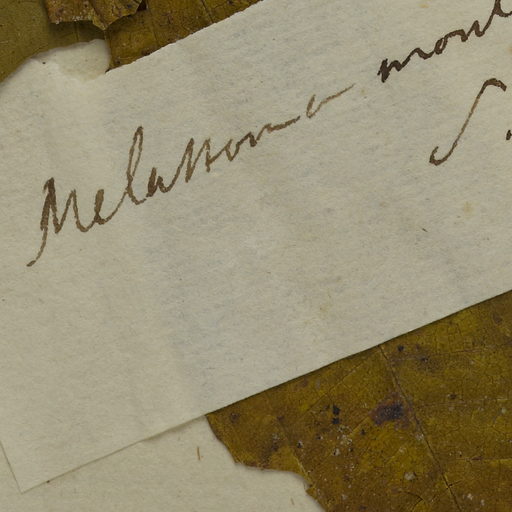 Melastoma mont
S.